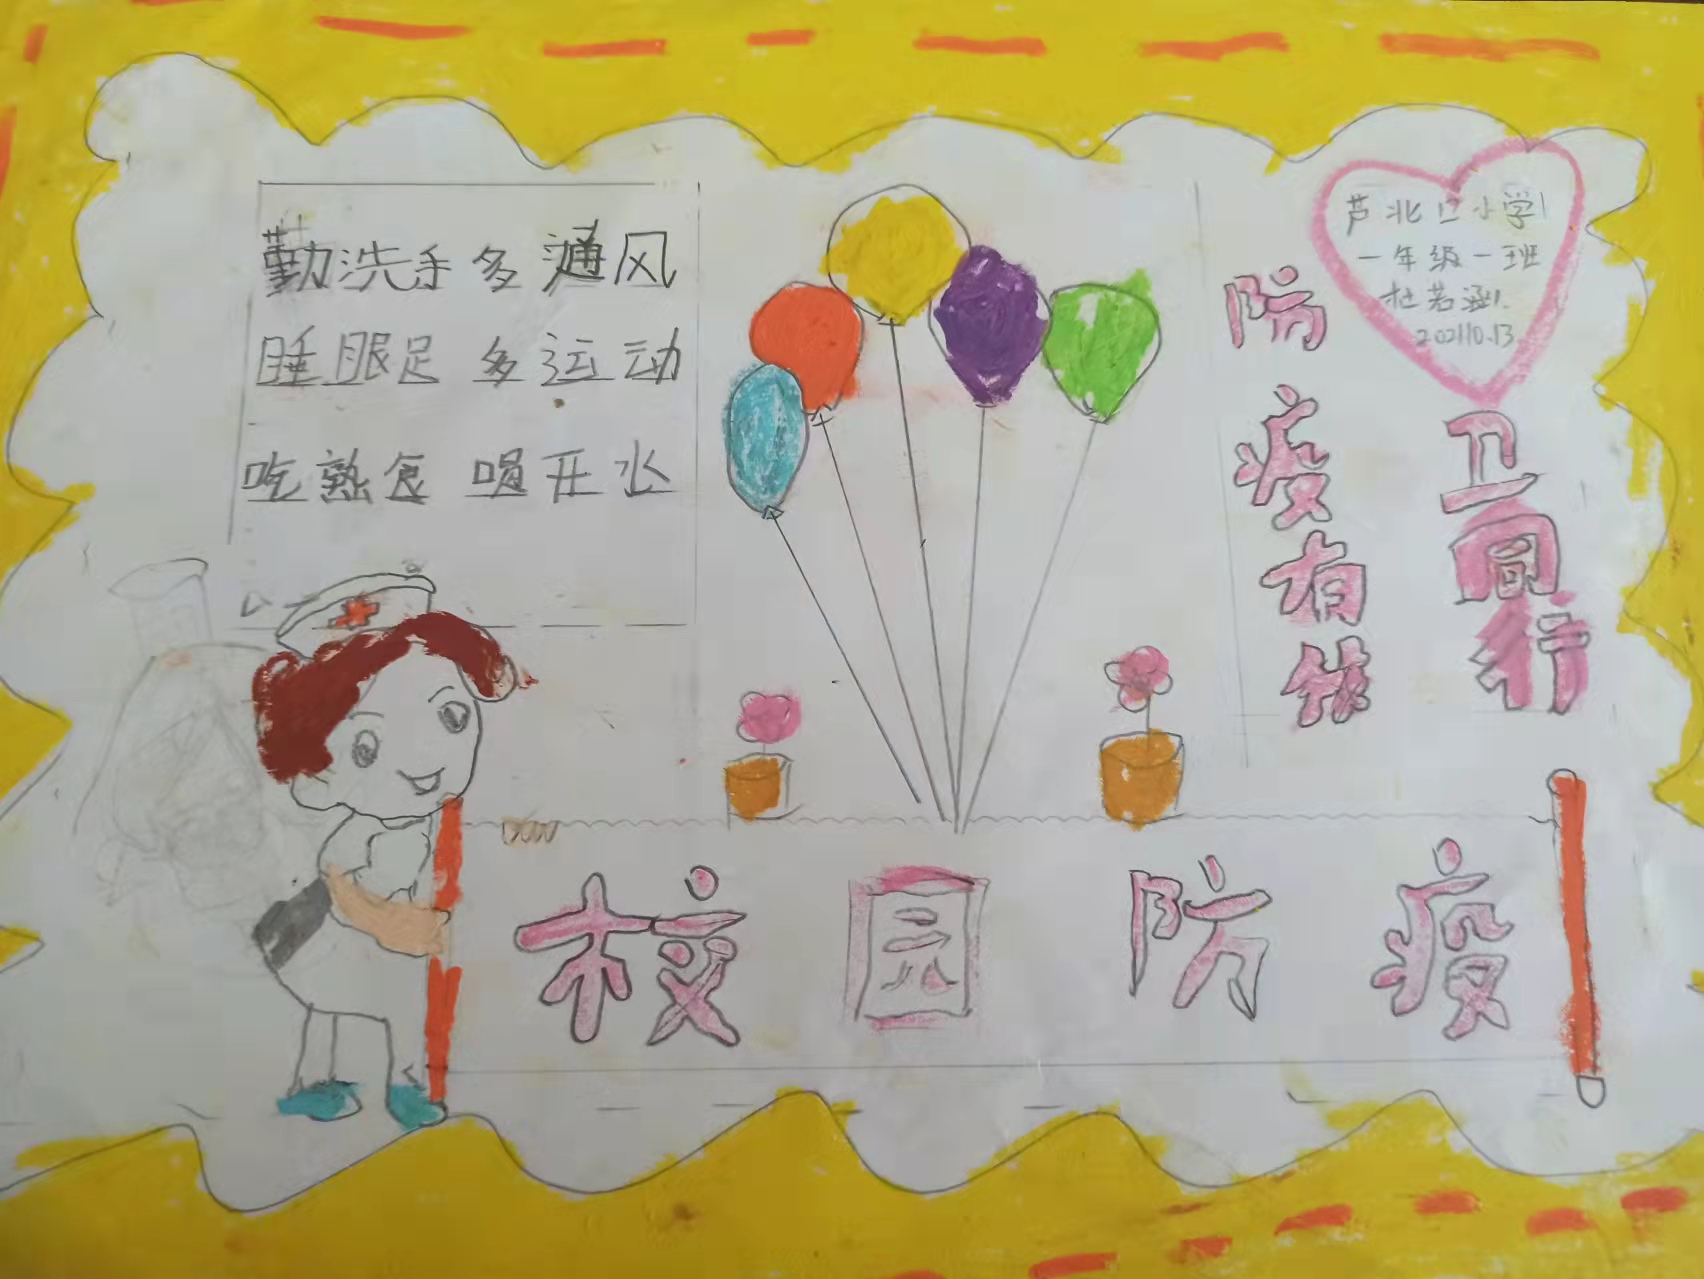 勤洗手 多通风
睡眼足 多运动
吃熟食 喝开水
芦北口小学
一年级一班
杜若涵
202110.13
防疫有
卫同行
校园防疫